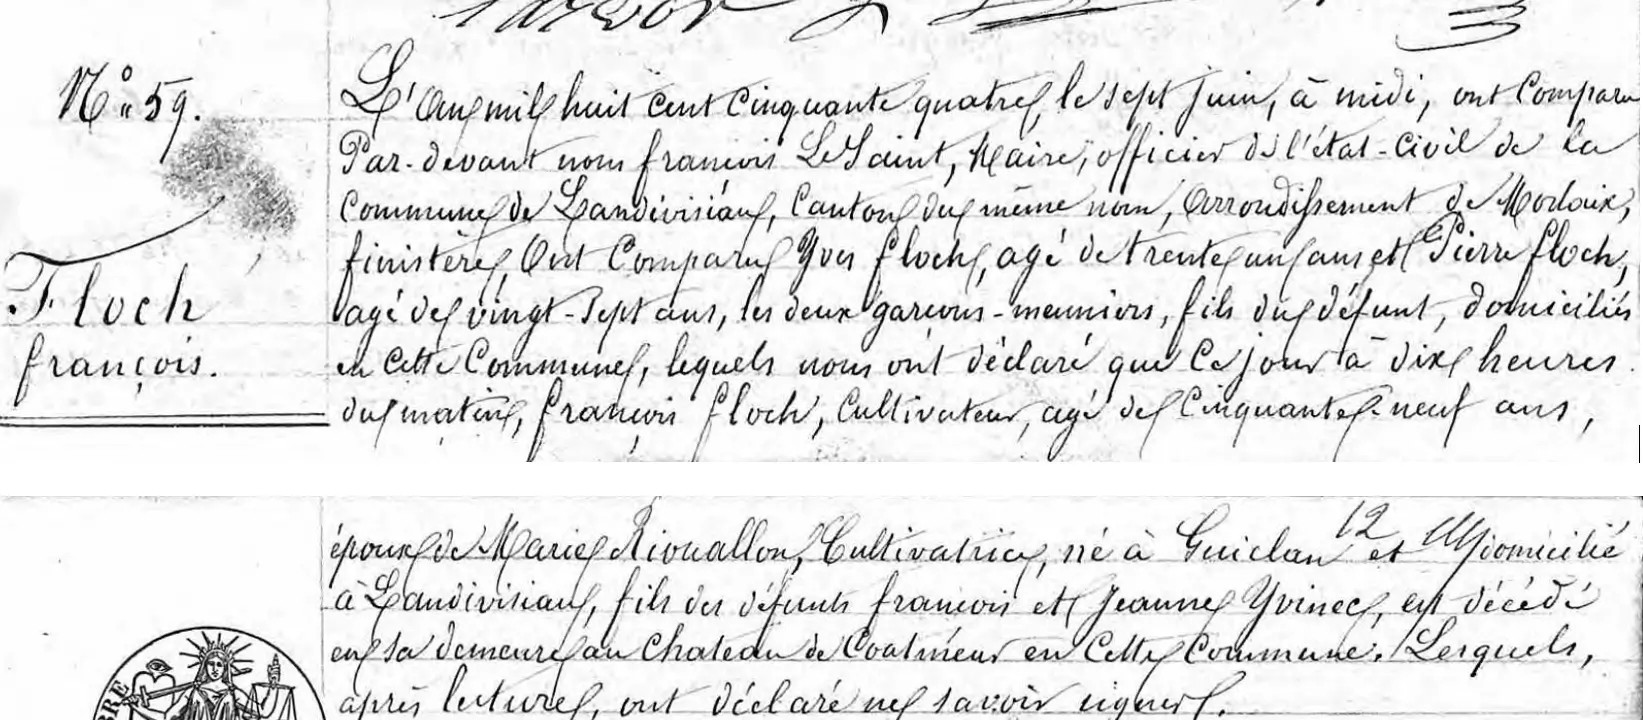 N° 59.
Floch
françois.
L'an mil huit cent cinquante quatre, le sept juin, à midi, ont comparu
Par-devant nous françois Le Saint, Maire, officier de l'état-civil de la
commune de Landivisiau, Canton du même nom, Arrondissement de Morlaix,
finistère, Ont Comparu Yves floch, agé de trente un ans et Pierre floch,
agé de vingt-sept ans, les deux garçons-meuniers, fils du défunt, domiciliés
en cette Commune, lequels nous ont déclaré que ce jour à dix heures
du matin, françois floch, Cultivateur, agé de Cinquante-neuf ans,
époux de Marie Riouallon, Cultivatrice, né à Guiclan et domicilié
12
à Landivisiau, fils des défunts françois et Jeanne Yvinec, est décédé
en sa demeure au Chateau de Coatmeur en Cette Commune. Lesquels,
après lecture, ont déclaré ne savoir signer.
BRE